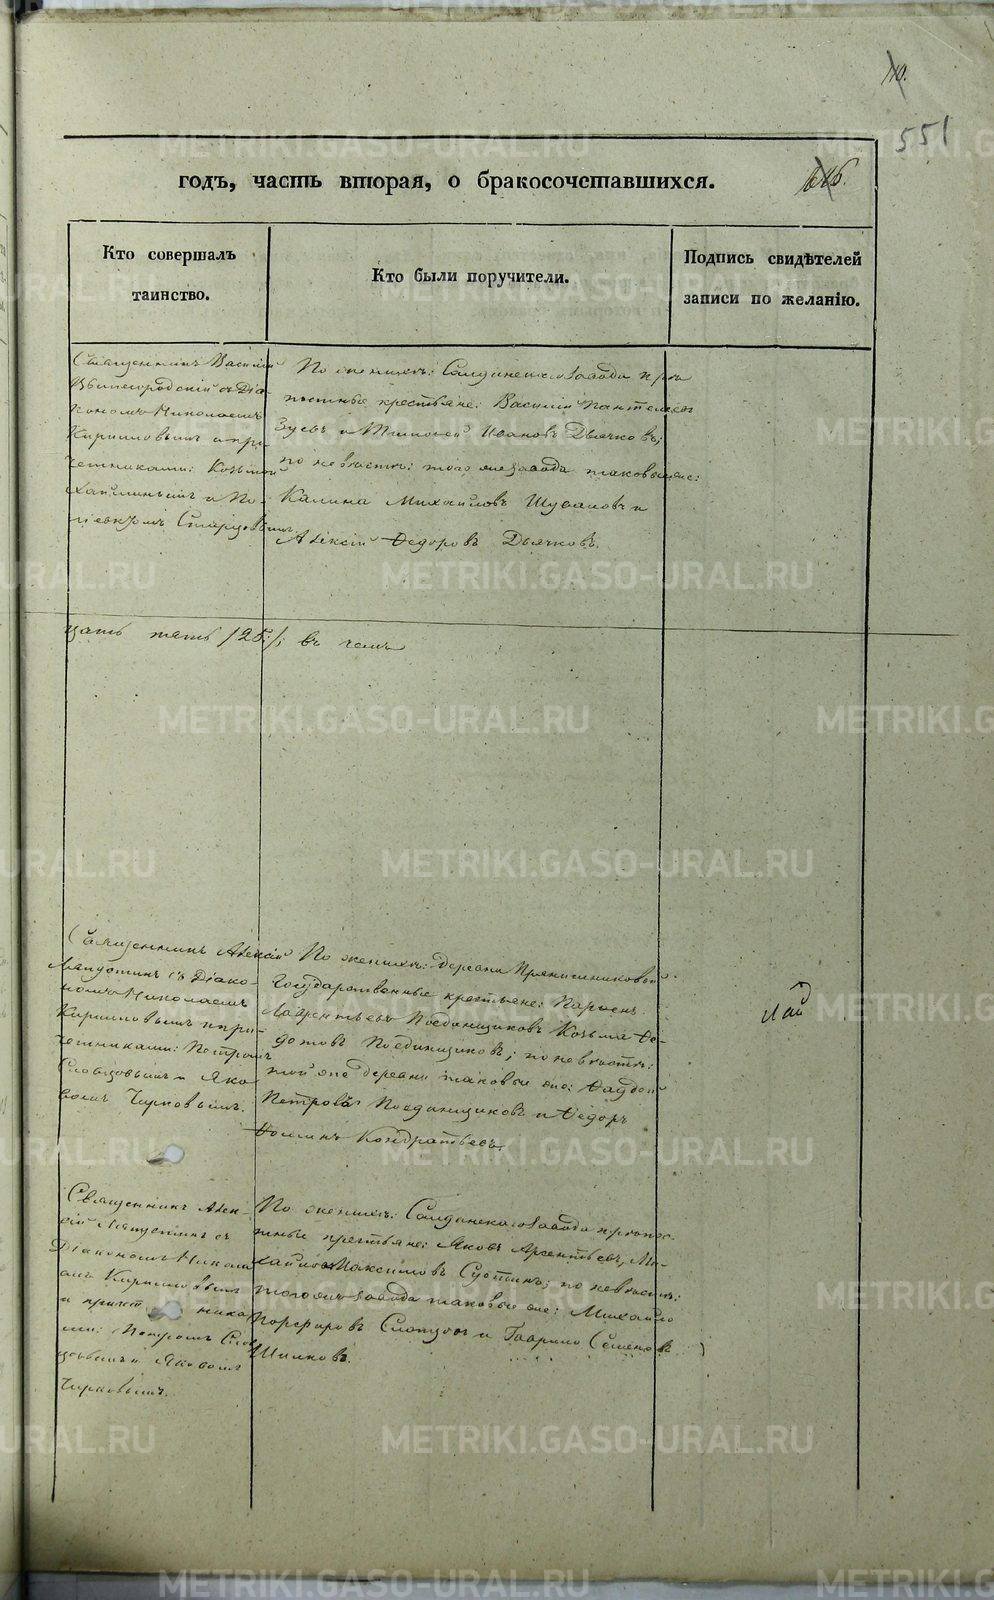 110.
551
годъ, часть вторая, о бракосочетавшихся.
Кто совершалъ
таинство.
Кто были поручители.
Подпись свидѣтелей
записи по желанію.
Священникъ Василій
Звенигородскій съ Діа-
кономъ Николаемъ
Кирилловымъ и при-
четниками: Козьмой
и По-
Старцовымъ.
По женихѣ: Салдинскаго завода крѣ-
постные крестьяне: Василій Пантелеевъ
Зуевъ и Тимофей Ивановъ Дьячковъ;
по невѣстѣ: того же завода таковые же:
Калина Михайловъ Шуваловъ и
Алексій Ѳедоровъ Дьячковъ.
цать пять /25/ въ чемъ
Священникъ Алексій
Лапотинъ съ Діако-
номъ Николаемъ
Кирилловымъ и при-
четниками: Петромъ
Словцовымъ и Яко-
вомъ Чирковымъ.
По женихѣ: деревни Прянишниковой
государственные крестьяне: Парменъ
Лаврентьевъ Поединщиковъ Козьма Ѳе-
дотовъ Поединщиковъ; по невѣстѣ:
той же деревни таковые же:
Петровъ Поединщиковъ и Ѳедоръ
Ѳоминъ Кондратьевъ.
Май
Священникъ Алек-
сій Лапотинъ съ
Діакономъ Никола-
емъ Кирилловымъ
и причетника-
ми: Петромъ Слов-
цовымъ и Яковомъ
Чирковымъ.
По женихѣ: Салдинскаго завода крѣпос-
тные крестьяне: Яковъ Арсентьевъ, Ми-
хайло Максимовъ; по невѣстѣ:
того же завода таковые же: Михайло
Порфировъ Слепцовъ и Гаврило Семеновъ
Шилковъ.
METRIKI.GASO-URAL.RU